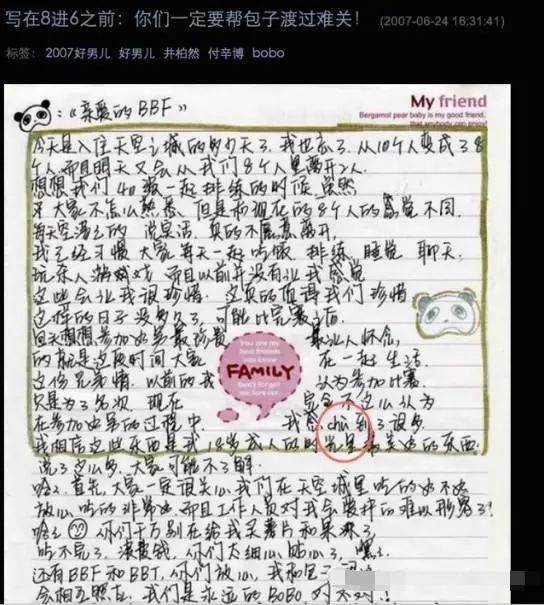 写在8进6之前：你们一定要帮包子渡过难关！ (2007-06-24 16:31:41)
标签： 2007好男儿 好男儿 井柏然 付辛博 bobo
：《亲爱的BBF》
My friend
Bergamot pear baby is my good friend,
that anybody can enjoy!
今天是入住天空之城的 天了，我也忘了，从10个人变成了8
个人，而且明天又会从我们8个人里离开2人，
想想我们 一起排练的时候 虽然
大家不怎么熟悉，但是和现在的8个人的感觉不同，
每天空荡荡的 说实话，真的不愿意离开，
我已经习惯大家每天一起吃饭 排练 睡觉 聊天，
玩杀人游戏 而且以前并没有让我感觉
这些会让我很珍惜 这真的值得我们珍惜
这样的日子没多久了，可能比完赛之后
回头想想参加 最珍贵 最让人怀念，
的就是这段时间大家 在一起生活
这份兄弟情，以前的我 认为参加比赛，
You are my
best friends
you know
FAMILY
Don't forget
只是为了名次 现在 完全不这么认为
在参加 的过程中， 我 chú到了很多
我相信这些东西是我18岁成人的时光里最 的东西，
说了这么多，大家可能不了解，
哈了，首先，大家一定很关心我们在天空城里吃的好不好
放心 吃的非常好 而且工作人员对我们 的难以形容了！
哈了 你们千万别在给我买薯片和果冻了
吃不完了，浪费钱，你们太细心 贴心了，嘿了
还有BBF和BBT，你们放心，我和包子
会相互照应，我们是永远的BOBO，对不对！